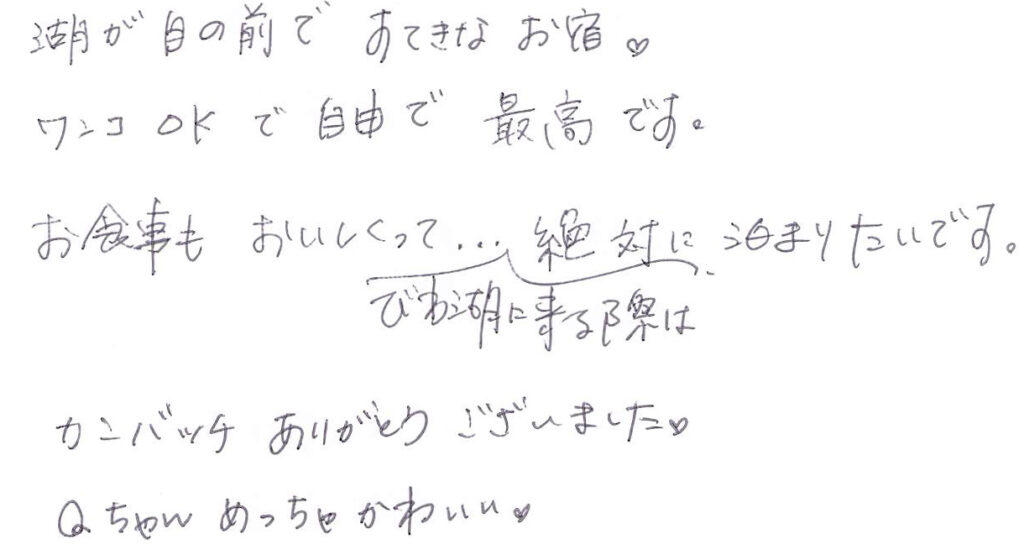 湖が目の前で すてきな お宿♡
ワンコ OK で 自由で 最高です。
お食事も おいしくって... 絶対に 泊まりたいです。
びわ湖に来る際は
カンバッチ ありがとう ございました♡
Qちゃん めっちゃ かわいい♡